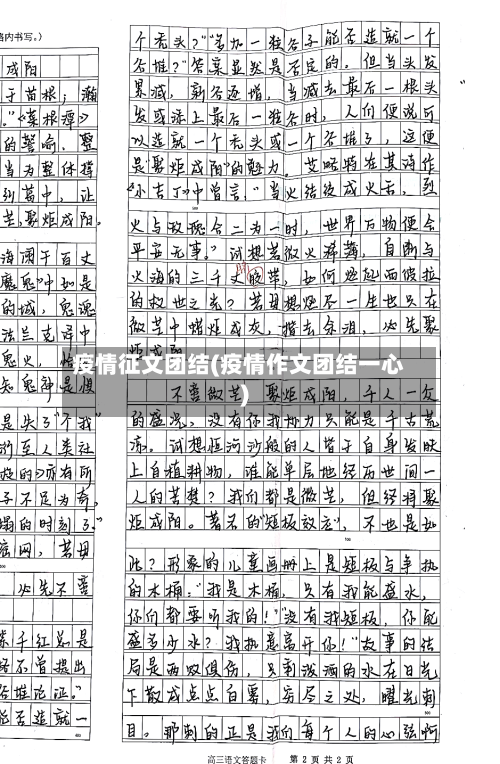 格内书写。)
成阳
于苗根；濒
。”《菜根谭》
的警喻。聚
当为整体撑
到篝中，让
芒，聚炬成阳。
海阔于百丈
魔鬼”中如是
的城，鬼魂
法兰克泽中
鬼火，
知鬼神是恨
是失了“个我”
衍至人类社
旋的》亦有所
子不足为奇，
塌的时刻了。”
底网，若毋
必先不啻
紫千红总是
经不曾提出
谷堆论证。”
能否造就一
个秃头？”“多加一粒谷子能否造就一个
谷堆？”答案显然是否定的。但当头发
累减，新谷逐增，当减去最后一根头
发或添上最后一粒谷时，人们便说可
以造就一个秃头或一个谷堆了，这便
是“聚炬成阳”的魅力。艾略特在其诗作
《小吉丁》中曾言，“当火结使成火舌，烈
火与玫瑰合二为一时，世界万物便会
平安无事。”试想若微火稀薄，自断与
火海的三千丈胶带，如何燃起西彼拉
的救世之光？若毋想燃尽一生也只在
微芒中蜡炬成灰，揩去余泪，必先聚
炬成阳。
疫情征文团结(疫情作文团结一心
)
不啻微芒，聚炬成阳，千人一炙
的盛况，没有你我协力只能是千古荒
凉。试想恒河沙般的人皆于自身发肤
上自植耕物，谁能单层地经历世间一
人的苦楚？我们都是微芒，但经将聚
炬成阳。著名的“短板效应”，不也是如
此？形象的儿童画册上是短板与争执
的木桶：“我是木桶，只有我能盛水，
你们都要听我的！”“没有我短板，你能
盛多少水？我执意离开你！”故事的结
局是两败俱伤，只剩泼洒的水在日光
下散成点点白雾，穷尽之处，曜光刺
目。那刺的正是我们每个人的心弦啊
高三语文答题卡 第2页共2页